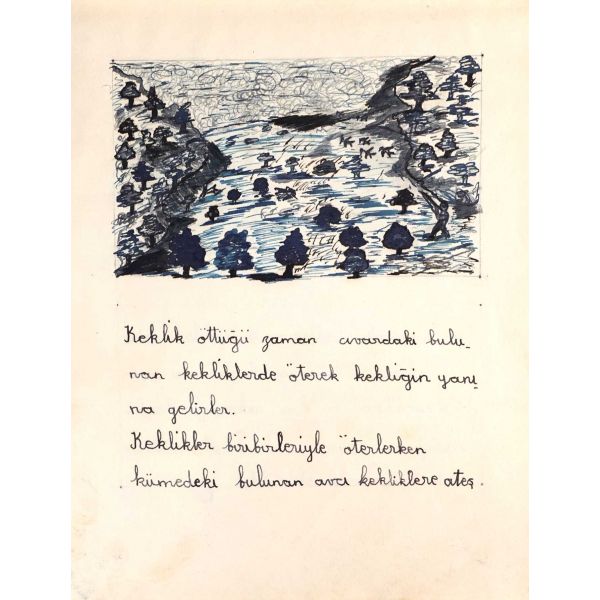 Keklik öttüğü zaman civardaki bulu_
nan kekliklerde öterek kekliğin yanı_
na gelirler.
Keklikler biribirleriyle öterlerken
kümedeki bulunan avcı kekliklere ateş.